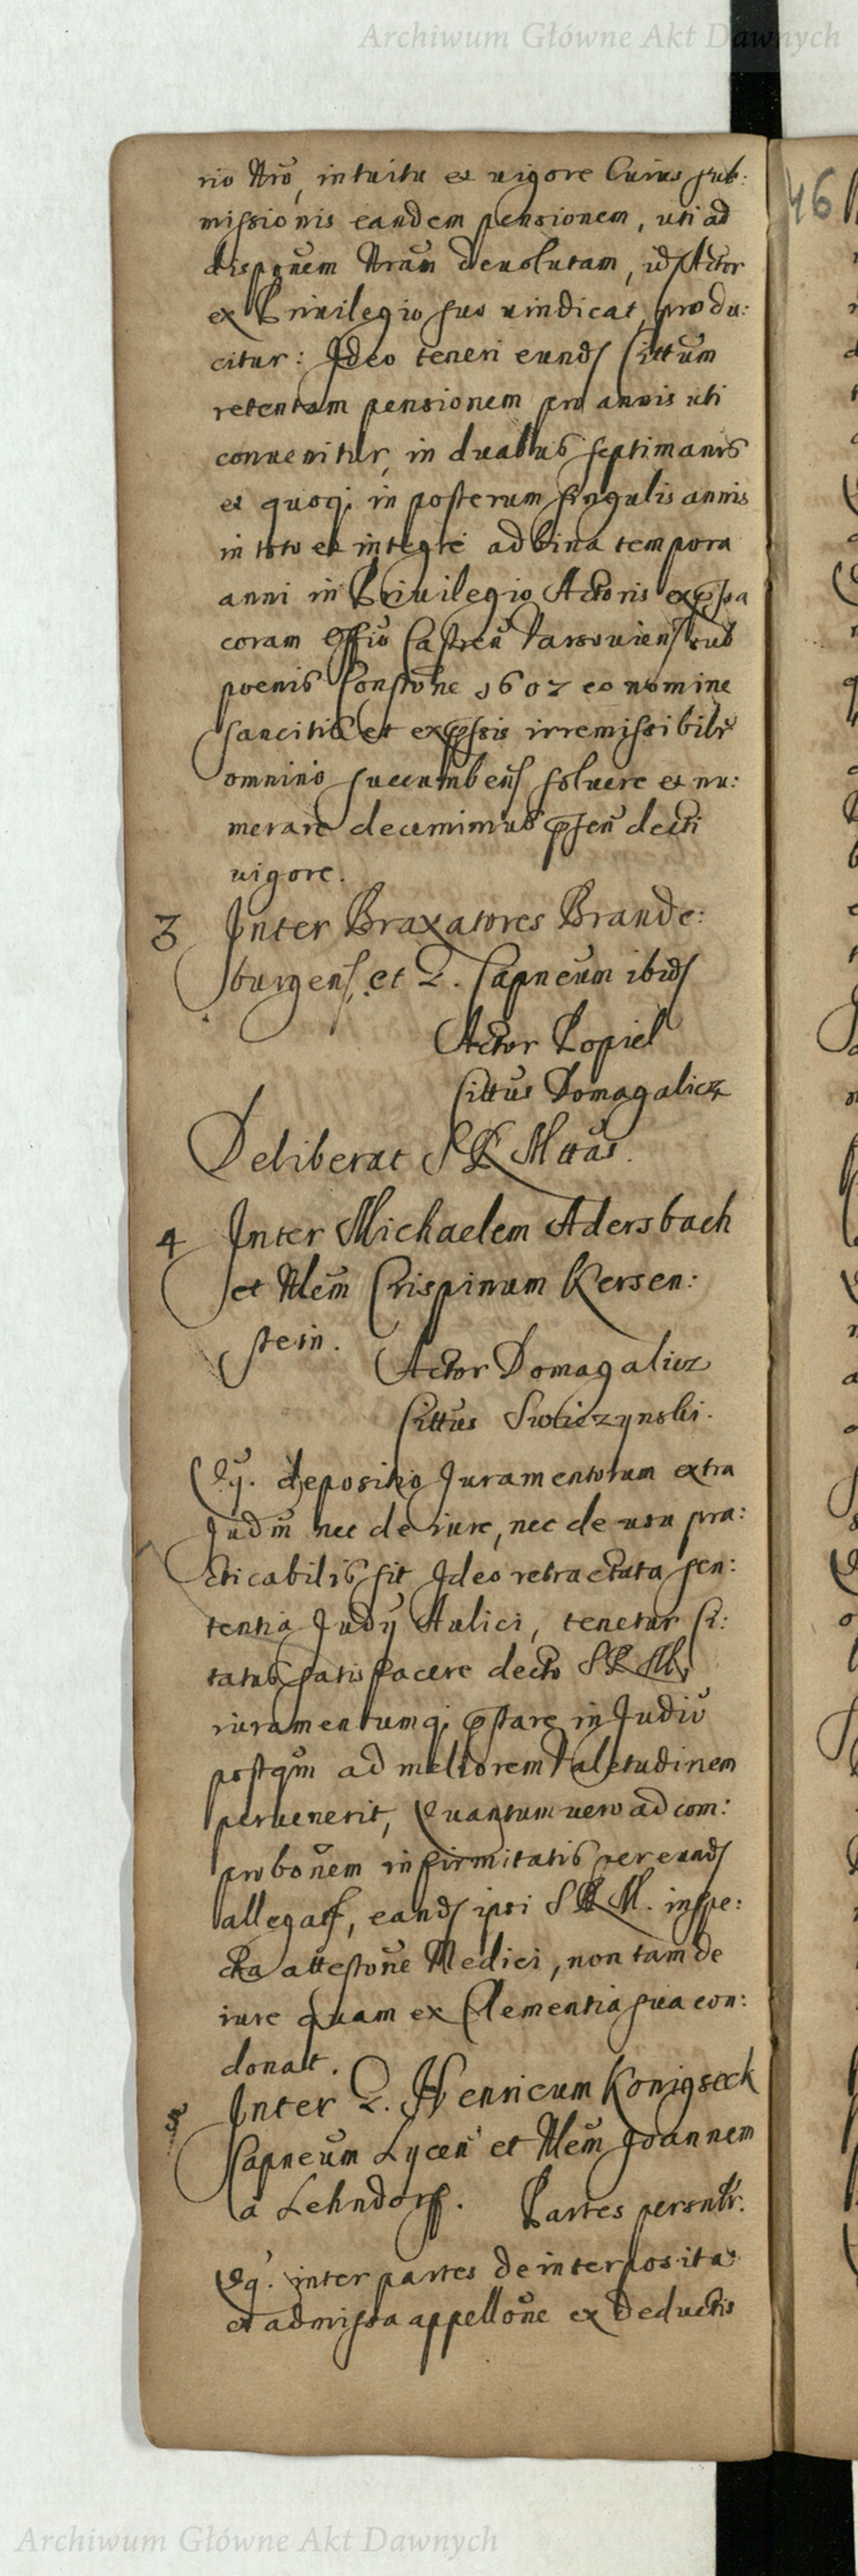 Archiwum Główne Akt Dawnych
46
rio Nrõ, intuitu et uigore Cuius sub:
missionis eandem pensionem, uti ad
disponem Nram deuolutam, id Actor
ex Priuilegio suo uindicat, produ:
citur: Ideo teneri eund Cittum
retentam pensionem pro annis uti
conuenitur, in duabus septimanis
et quoqi in posterum singulis annis
in toto et integre ad bina tempora
anni in Priuilegio Actoris expssa
coram Offio Castren Varsouiens sub
poenis Constone 1607 eo nomine
sancitis et expssis irremissibilr
omnino succumbens soluere et nu:
merare decernimus psen decti
uigore.
3 Inter Braxatores Brande:
burgens et G. Capneum ibid
Actor Popiel
Cittus Domagalicz
Deliberat S R Mttas.
4 Inter Michaelem Adersbach
et Nlem Crispinum Kersen:
stein.
Actor Domagalicz
Cittus Swiezynski.
Qq. depositio Juramentorum extra
Judm nec de iure, nec de usu pra:
cticabilis sit Ideo retractata sen:
tentia Judy Aulici, tenetur Ci:
tatus satisfacere decto S R M,
iuramentumqi pstare in Judiu
postqm ad meliorem Valetudinem
peruenerit, Quantum uero ad com:
probonem infirmitatis per eund
allegat, eand ipsi S R M. inspe:
cta attestone Medici, non tam de
iure quam ex Clementia sua con:
donat.
5 Inter G. Henricum Konigseck
Capneum Lycen et Nlem Joannem
a Lehndorff. Partes personlr.
Qq. inter partes de interposita
et admissa appellone ex deductis
Archiwum Główne Akt Dawnych